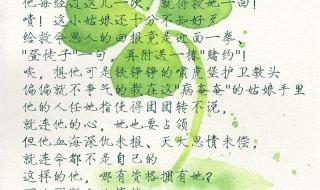 啧！这小姑娘还十分不知好歹
给救命恩人的回报竟是迎面一拳、
"登徒子"一句，再附送一撂"赌约"！
唉，想他可是铁铮铮的啸虎堡护卫教头
偏偏就不争气的栽在这"病奄奄"的姑娘手里
他的人任她指使得团团转不说，
就连他的心，她也要占领
但他血海深仇未报、天大恩情未偿，
就连命都不是自己的
这样的他，哪有资格拥有她？